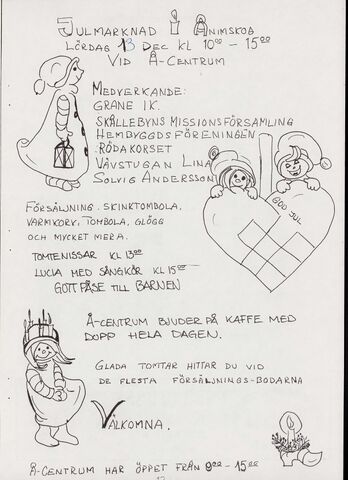 JULMARKNAD I ÄNIMSKOG
LÖRDAG 13 DEC KL 10⁰⁰ - 15⁰⁰
VID Å-CENTRUM
MEDVERKANDE:
GRANE I K.
SKÅLLEBYNS MISSIONSFÖRSAMLING
HEMBYGGDSFÖRENINGEN
RÖDAKORSET
VÄVSTUGAN LINA
SOLVIG ANDERSSON
GOD JUL
FÖRSÄLJNING. SKINKTOMBOLA.
VARMKORV, TOMBOLA, GLÖGG
OCH MYCKET MERA.
TOMTENISSAR KL 13⁰⁰
LUCIA MED SÅNGKÖR KL 15⁰⁰
GOTTPÅSE TILL BARNEN
Å-CENTRUM BJUDER PÅ KAFFE MED
DOPP HELA DAGEN.
GLADA TOMTAR HITTAR DU VID
DE FLESTA FÖRSÄLJNINGS-BODARNA
VÄLKOMNA.
Å-CENTRUM HAR ÖPPET FRÅN 9⁰⁰ - 15⁰⁰